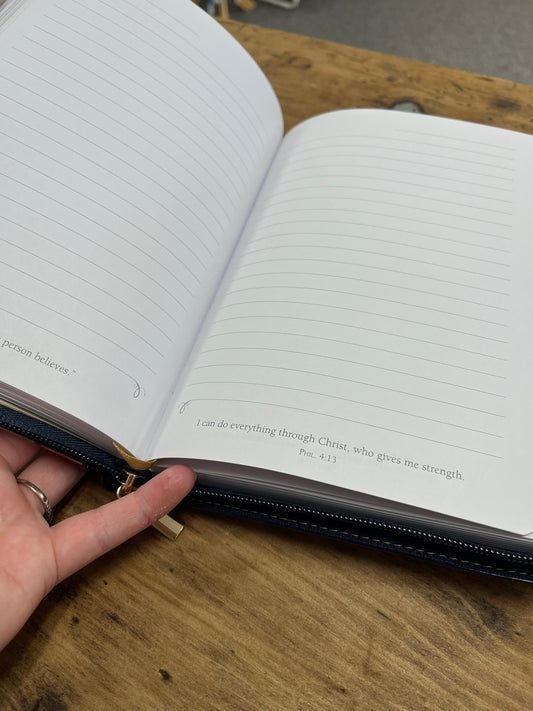 person believes."
I can do everything through Christ, who gives me strength.
Phil. 4:13